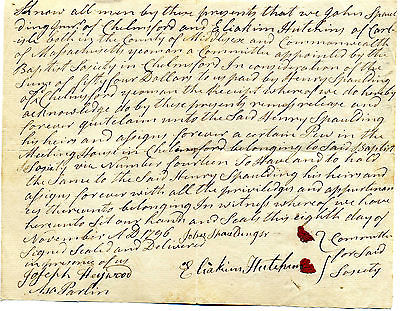 Know all men by these presents that we John Spaul-
ding Junr of Chelmsford and Eliakim Hutchins of Carl-
isle both in the County of Middlesex and Commonwealth
of Massachusetts yeoman a Committe appointed by the
Baptist Society in Chelmsford In consideration of the
Sum of fifty four Dollars to us paid by Henry Spaulding
of Chelmsford yeoman the Receipt whereof we do hereby
acknowledge do by these presents remise release and
forever quitclaim unto the Said Henry Spaulding
his heirs and assigns forever a certain Pew in the
Meeting House in Chelmsford belonging to Said Baptist
Society viz Number fourteen To Have and to hold
the Same to the Said Henry Spaulding his heirs and
assigns forever with all the priviledges and appurtenan-
ces thereunto belonging In witness whereof we have
hereunto Set our hands and Seals this eighth day of
November AD 1796
John Spaulding Jr
Signed Sealed and Delivered
in presence of us
Eliakim Hutchins
Committe
for Said
Society
Joseph Heywood
Asa Parlin